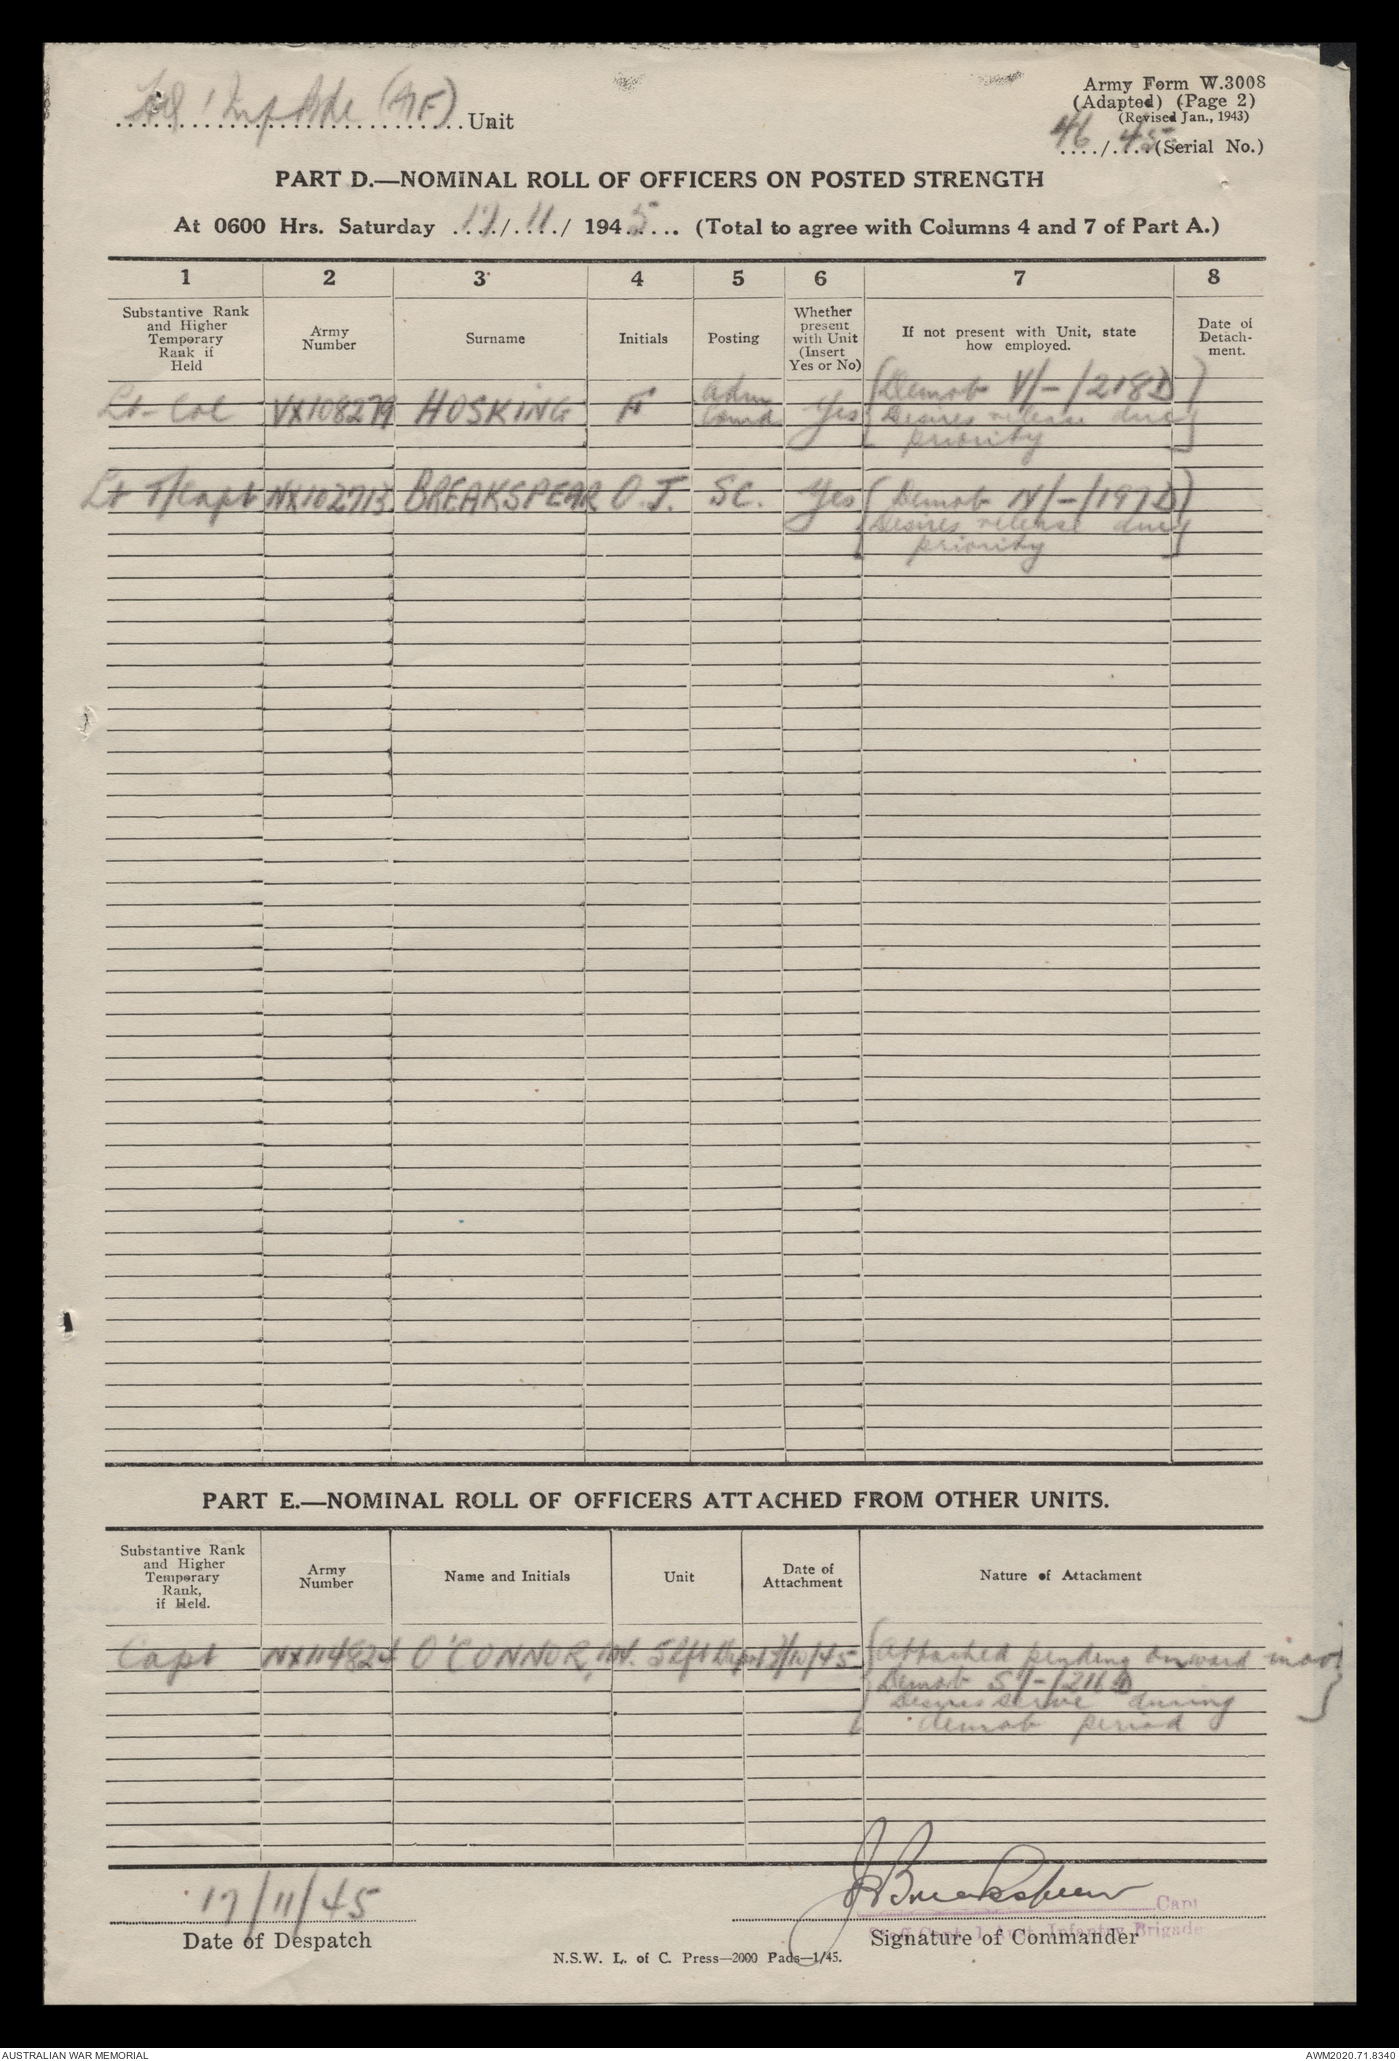 Army Form W.3008
(Adapted) (Page 2)
(Revised Jan., 1943)
HQ 1 Inf Bde (AIF) Unit
46/45 (Serial No.)
PART D.—NOMINAL ROLL OF OFFICERS ON POSTED STRENGTH
At 0600 Hrs. Saturday 17/11/1945 (Total to agree with Columns 4 and 7 of Part A.)
1 2 3 4 5 6 7 8
Substantive Rank and Higher Temporary Rank if Held
Army Number
Surname
Initials
Posting
Whether present with Unit (Insert Yes or No)
If not present with Unit, state how employed.
Date of Detach-ment.
Lt-Col VX108279 HOSKING F Adm Comd Yes (Demob V/-/218D)
Desires release due
priority
Lt T/Capt NX102713 BREAKSPEAR O.J. SC. Yes (Demob N/-/197D)
Desires release due
priority
PART E.—NOMINAL ROLL OF OFFICERS ATTACHED FROM OTHER UNITS.
Substantive Rank and Higher Temporary Rank, if Held.
Army Number
Name and Initials
Unit
Date of Attachment
Nature of Attachment
Capt NX114824 O'CONNOR, /10/45 (Attached pending onward
Demob S/-/216D
Desires serve during
demob period
17/11/45
Date of Despatch
JBreakspear
Capt
Staff Capt 1 Aust. Infantry Brigade
Signature of Commander
N.S.W. L. of C. Press—2000 Pads—1/45.
AUSTRALIAN WAR MEMORIAL
AWM2020.71.8340